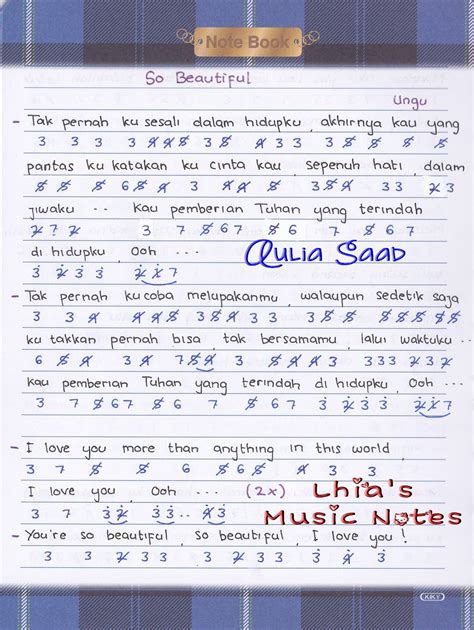 Note Book
So Beautiful
Ungu
- Tak pernah ku sesali dalam hidupku, akhirnya kau yang
3 3 3 3 4̸ 4̸ 5̸ 3 4̸ 3 3 4̸ 5̸ 5̸ 5̸ 5̸ 5̸
pantas ku katakan ku cinta kau, sepenuh hati, dalam
5̸ 5̸ 5̸ 6 5̸ 4̸ 3 4̸ 4̸ 5̸ 3 5̸ 4̸ 3 3 2̸ 3
jiwaku .. kau pemberian Tuhan yang terindah
2̸ 2̸ 2̸ 3 7 5̸ 6 7 5̸ 6 7 5̸ 6 7
di hidupku, Ooh ...
Aulia Saad
- Tak pernah kucoba melupakanmu, walaupun sedetik saja
ku takkan pernah bisa, tak bersamamu, lalui waktuku ..
kau pemberian Tuhan yang terindah di hidupku, Ooh ...
3 7 5̸ 6 7 5̸ 6 7 5̸ 6 7
- I love you more than anything in this world,
3 7 5̸ 5̸ 6 5̸ 6 5̸ 4̸ 3 3
I love you, Ooh ... (2x)
Lhia's
Music Notes
- You're so beautiful, so beautiful, I love you!
KIKY